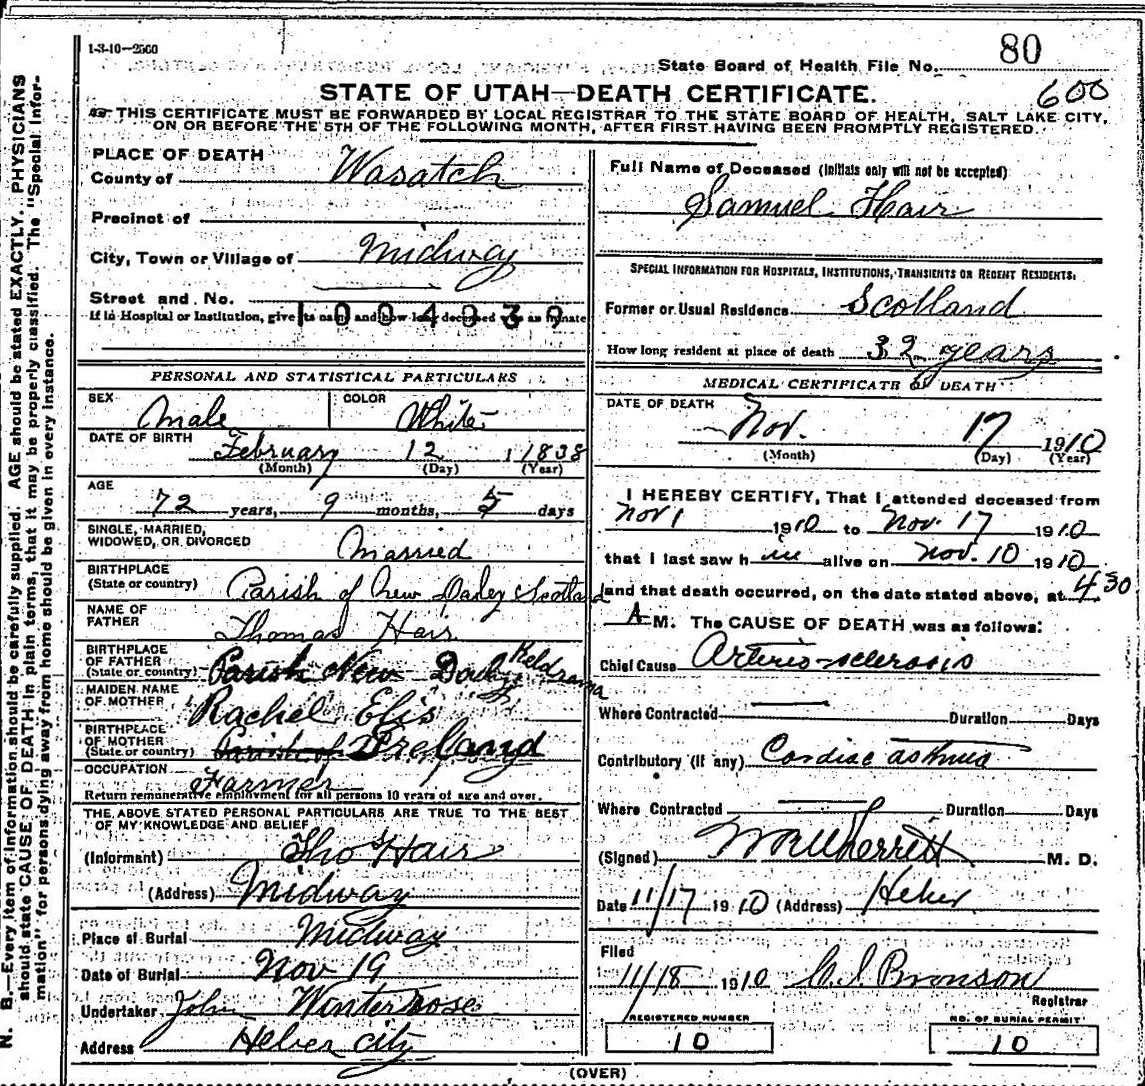 1-3-10—2500
State Board of Health File No. 80
600
STATE OF UTAH—DEATH CERTIFICATE.
THIS CERTIFICATE MUST BE FORWARDED BY LOCAL REGISTRAR TO THE STATE BOARD OF HEALTH, SALT LAKE CITY,
ON OR BEFORE THE 5TH OF THE FOLLOWING MONTH, AFTER FIRST HAVING BEEN PROMPTLY REGISTERED.
N. B.—Every item of information should be carefully supplied. AGE should be stated EXACTLY. PHYSICIANS
should state CAUSE OF DEATH in plain terms, that it may be properly classified. The "Special Infor-
mation" for persons dying away from home should be given in every instance.
PLACE OF DEATH
County of Wasatch
Precinct of
City, Town or Village of Midway
Street and No.
1004039
If in Hospital or Institution, give its name and how long deceased was an inmate
PERSONAL AND STATISTICAL PARTICULARS
SEX Male COLOR White
DATE OF BIRTH February 12 1838
(Month) (Day) (Year)
AGE
72 years, 9 months, 5 days
SINGLE, MARRIED,
WIDOWED, OR DIVORCED Married
BIRTHPLACE
(State or country) Parish of New Daley Scotland
NAME OF
FATHER Thomas Hair
BIRTHPLACE
OF FATHER
(State or country) Parish New
MAIDEN NAME
OF MOTHER Rachel Efis
BIRTHPLACE
OF MOTHER
(State or country) Parish of Ireland
OCCUPATION
Farmer
Return remunerative employment for all persons 10 years of age and over.
THE ABOVE STATED PERSONAL PARTICULARS ARE TRUE TO THE BEST
OF MY KNOWLEDGE AND BELIEF
(Informant) Tho Hair
(Address) Midway
Place of Burial Midway
Date of Burial Nov 19
Undertaker John Winterrose
Address Heber city
Full Name of Deceased (Initials only will not be accepted)
Samuel Hair
SPECIAL INFORMATION FOR HOSPITALS, INSTITUTIONS, TRANSIENTS OR RECENT RESIDENTS:
Former or Usual Residence Scotland
How long resident at place of death 32 years
MEDICAL CERTIFICATE OF DEATH
DATE OF DEATH
Nov. 17 1910
(Month) (Day) (Year)
I HEREBY CERTIFY, That I attended deceased from
Nov 1 1910 to Nov. 17 1910
that I last saw h im alive on Nov. 10 1910
and that death occurred, on the date stated above, at 4.30
A M. The CAUSE OF DEATH was as follows:
Chief Cause Arterio-sclerosis
Where Contracted Duration Days
Contributory (if any) Cardiac asthma
Where Contracted Duration Days
(Signed) M. D.
Date 11/17 1910 (Address) Heber
Filed
11/18 1910 Bronson
Registrar
REGISTERED NUMBER
10
NO. OF BURIAL PERMIT
10
(OVER)